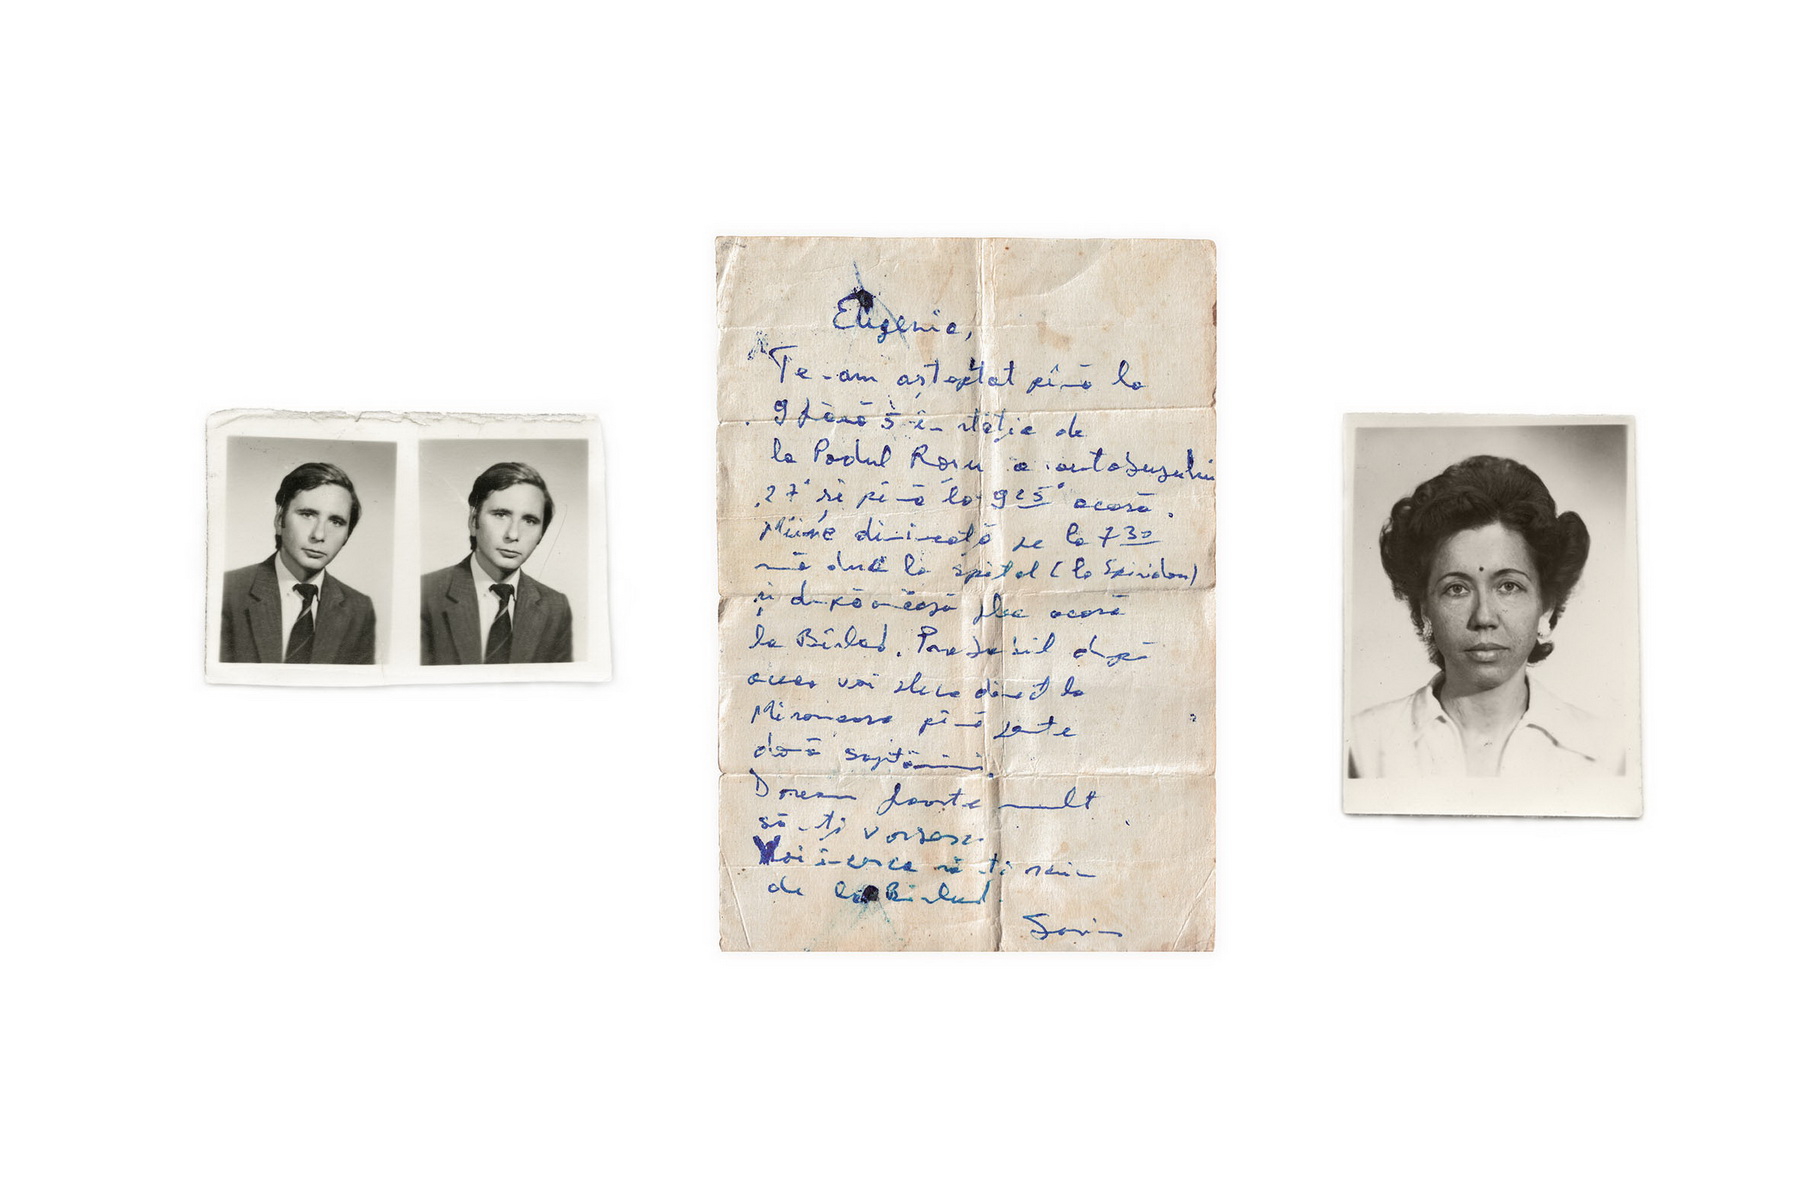 Eugenia,
Te-am așteptat pînă la
9 fără 5 în stația de
la Podul Roșu a autobuzului
27 și pînă la 9 25 acasă.
Mîine dimineață pe la 7 30
mă duc la spital (la Spiridon)
și după-masă plec acasă
la Bîrlad. Probabil după
aceea voi pleca direct la
Mironeasa pînă peste
două săptămîni.
Doream foarte mult
să-ți vorbesc.
Voi încerca să-ți scriu
de la Bîrlad.
Sorin